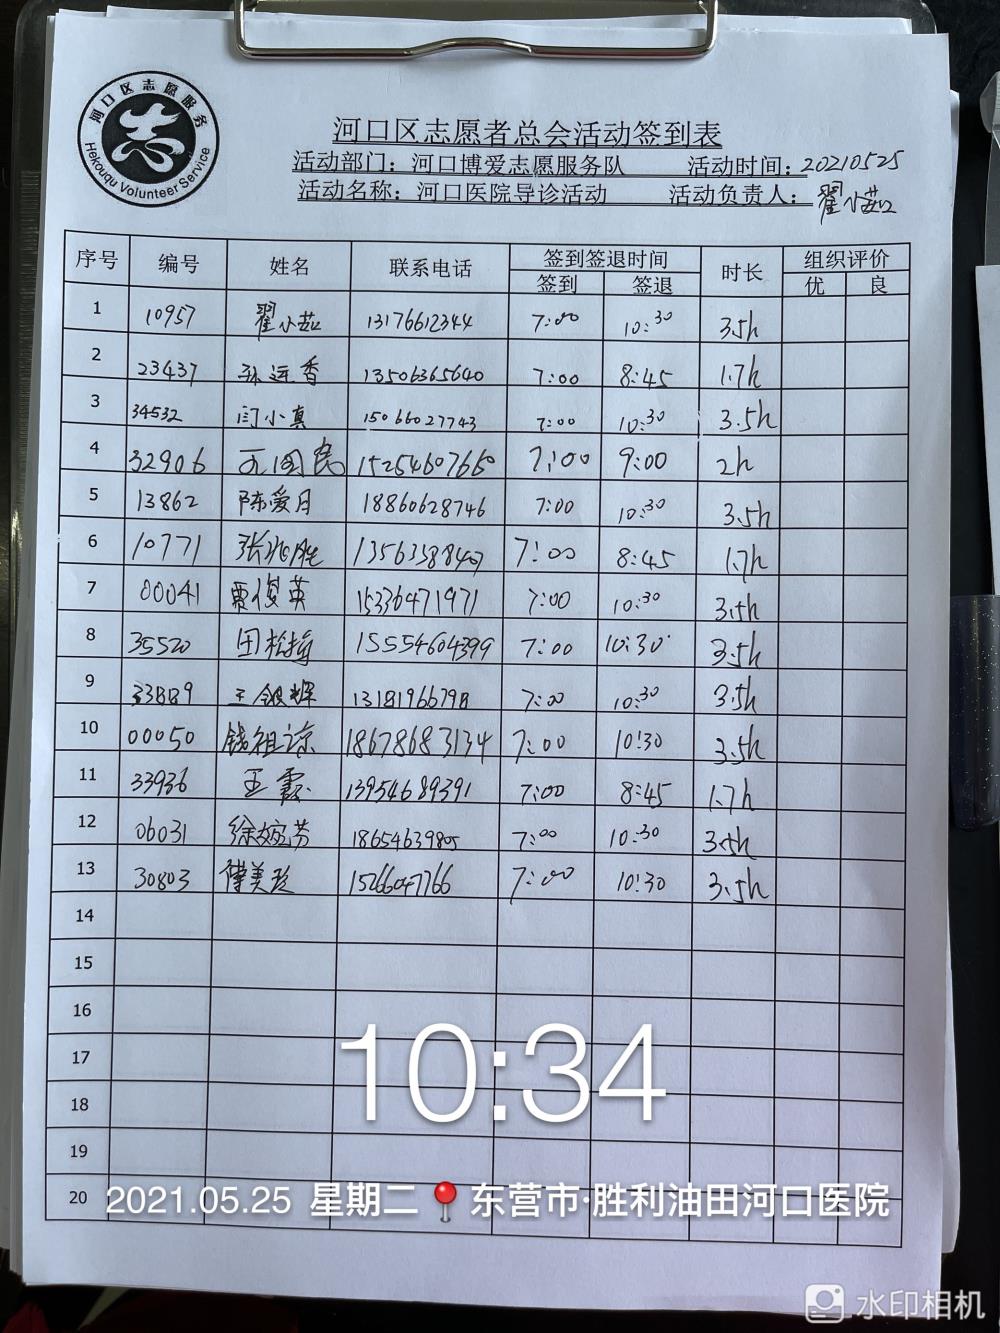 河口区志愿服务
志
Hekouqu Volunteer Service
河口区志愿者总会活动签到表
活动部门：河口博爱志愿服务队 活动时间：20210525
活动名称：河口医院导诊活动 活动负责人：翟小茹
序号 编号 姓名 联系电话 签到签退时间 时长 组织评价
签到 签退 优 良
1 10957 翟小茹 13176612344 7:00 10:30 3.5h
2 23437 孙远香 13506365640 7:00 8:45 1.7h
3 34532 闫小真 15066027743 7:00 10:30 3.5h
4 32906 国民 15254607660 7:00 9:00 2h
5 13862 陈爱月 18860628746 7:00 10:30 3.5h
6 10771 张兆胜 7:00 8:45 1.7h
7 00041 贾俊英 15336471971 7:00 10:30 3.5h
8 35520 田松梅 15554604399 7:00 10:30 3.5h
9 33889 王银辉 13181966798 7:00 10:30 3.5h
10 00050 钱祖谅 18678683134 7:00 10:30 3.5h
11 33936 王霞 13954689391 7:00 8:45 1.7h
12 06031 徐婉芳 18654639805 7:00 10:30 3.5h
13 30803 傅美玲 15266047766 7:00 10:30 3.5h
14
15
16
17
18
19
20
10:34
2021.05.25 星期二 东营市·胜利油田河口医院
水印相机